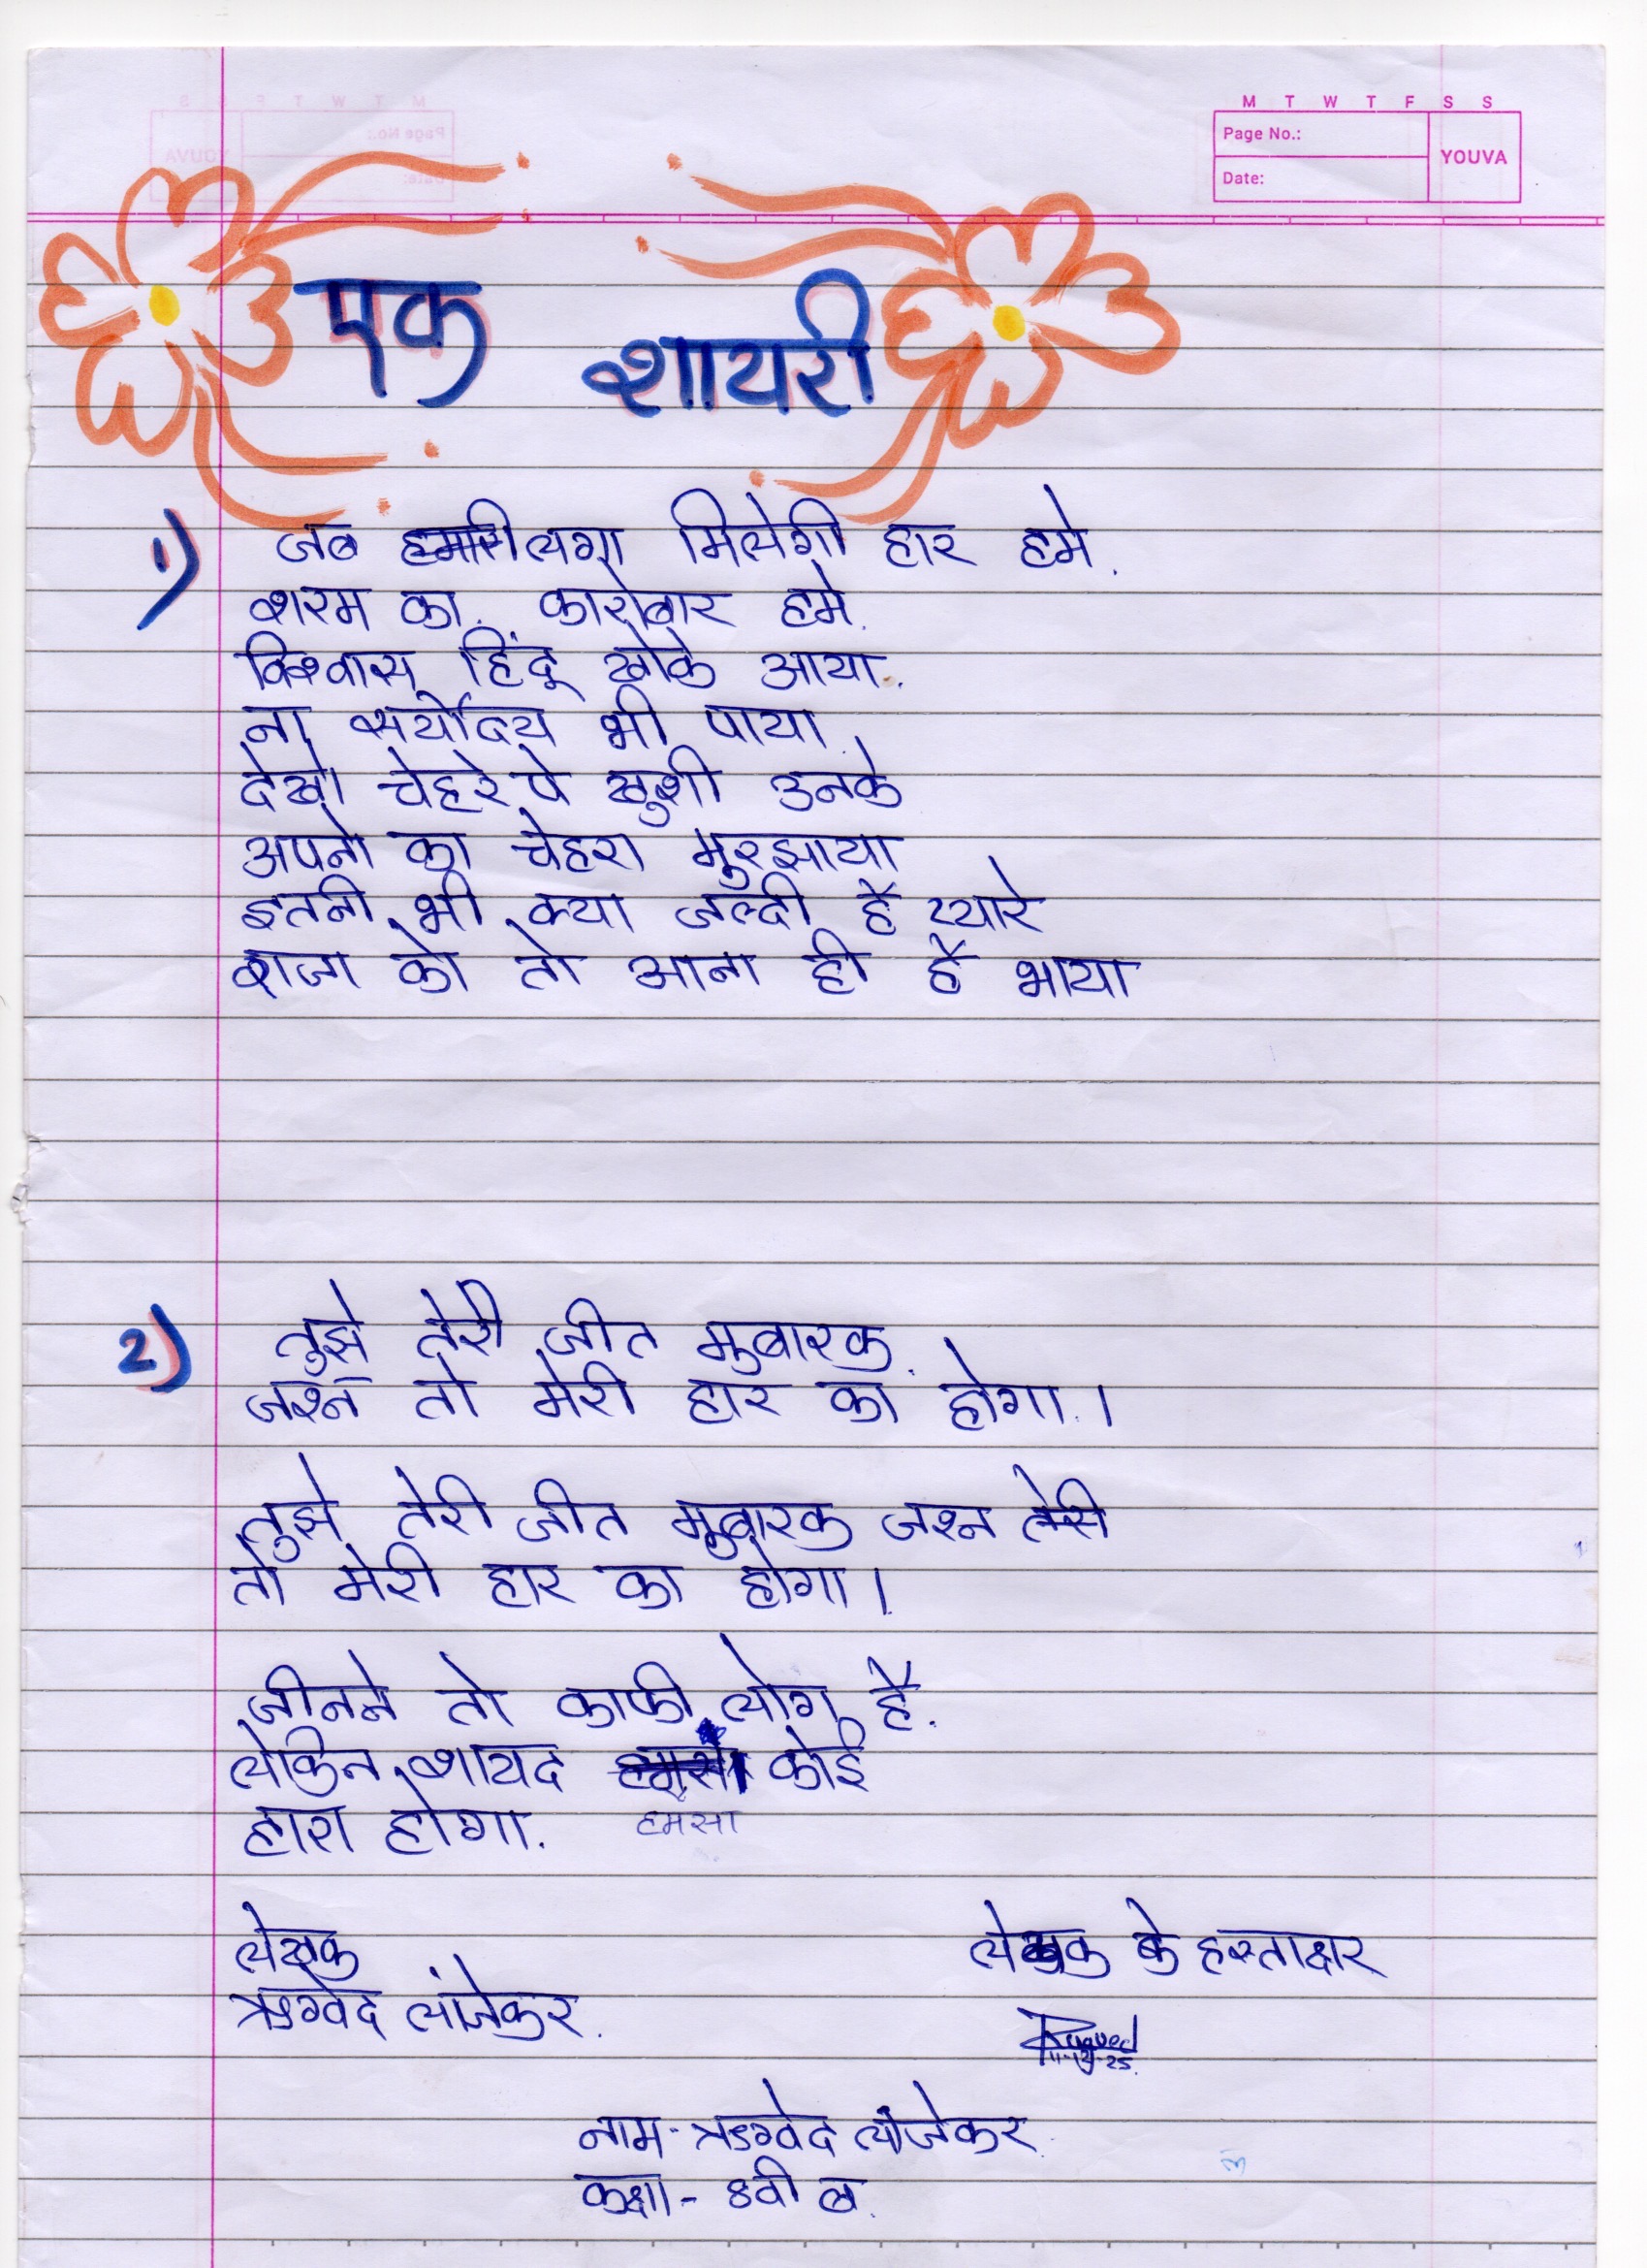 M T W T F S S
Page No.:
YOUVA
Date:
एक
शायरी
1) जब लगा मिलेगी हार हमे.
शरम का. कारोबार हमे.
विश्वास हिंदू खोके आया.
ना सर्योदय भी पाया.
देखो चेहरे पे खुशी उनके
अपनो का चेहरा मुरझाया
इतनी भी क्या जल्दी है प्यारे
राजा को तो आना ही है भाया
2) तुझे तेरी जीत मुबारक.
जश्न तो मेरी हार का होगा.।
तुझे तेरी जीत मुबारक जश्न
तो मेरी हार का होगा।
जीनने तो काफी लोग है.
लेकिन शायद कोई
हारा होगा. हमसा
लेखक
लेखक के हस्ताक्षर
ऋग्वेद लांजेकर.
Rugved
11-12-25.
नाम- ऋग्वेद लांजेकर.
कक्षा - 8वी ब.